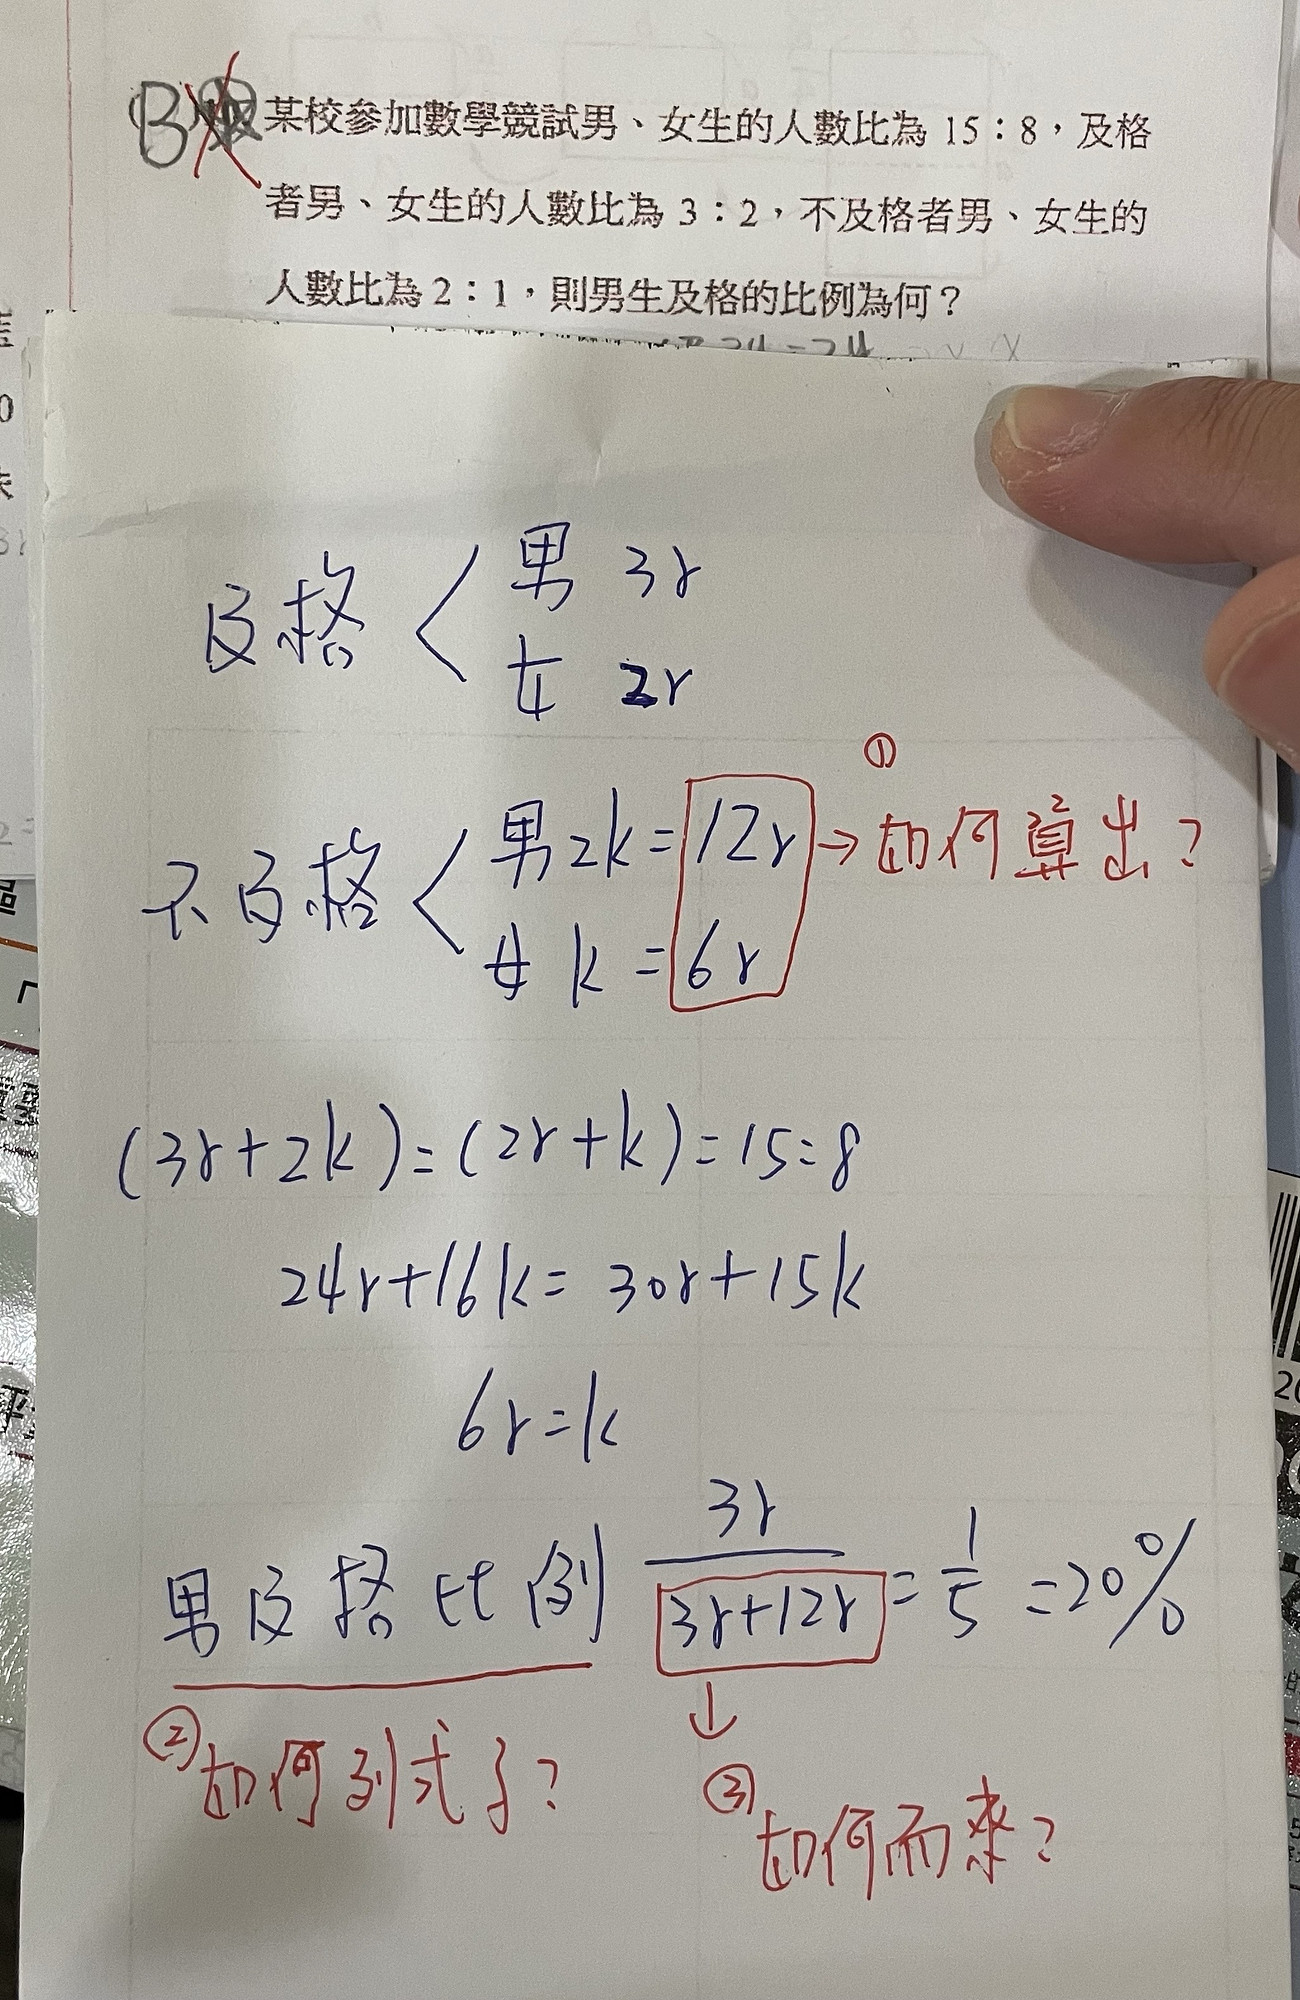 B 某校參加數學競試男、女生的人數比為 15:8,及格
者男、女生的人數比為 3:2,不及格者男、女生的
人數比為 2:1,則男生及格的比例為何?
及格 男 3r
女 2r
①
不及格 男 2k = 12r → 如何算出?
女 k = 6r
(3r+2k):(2r+k)=15:8
24r+16k=30r+15k
6r=k
男及格比例 3r/3r+12r = 1/5 = 20%
②如何列式子?
↓
③如何而來?